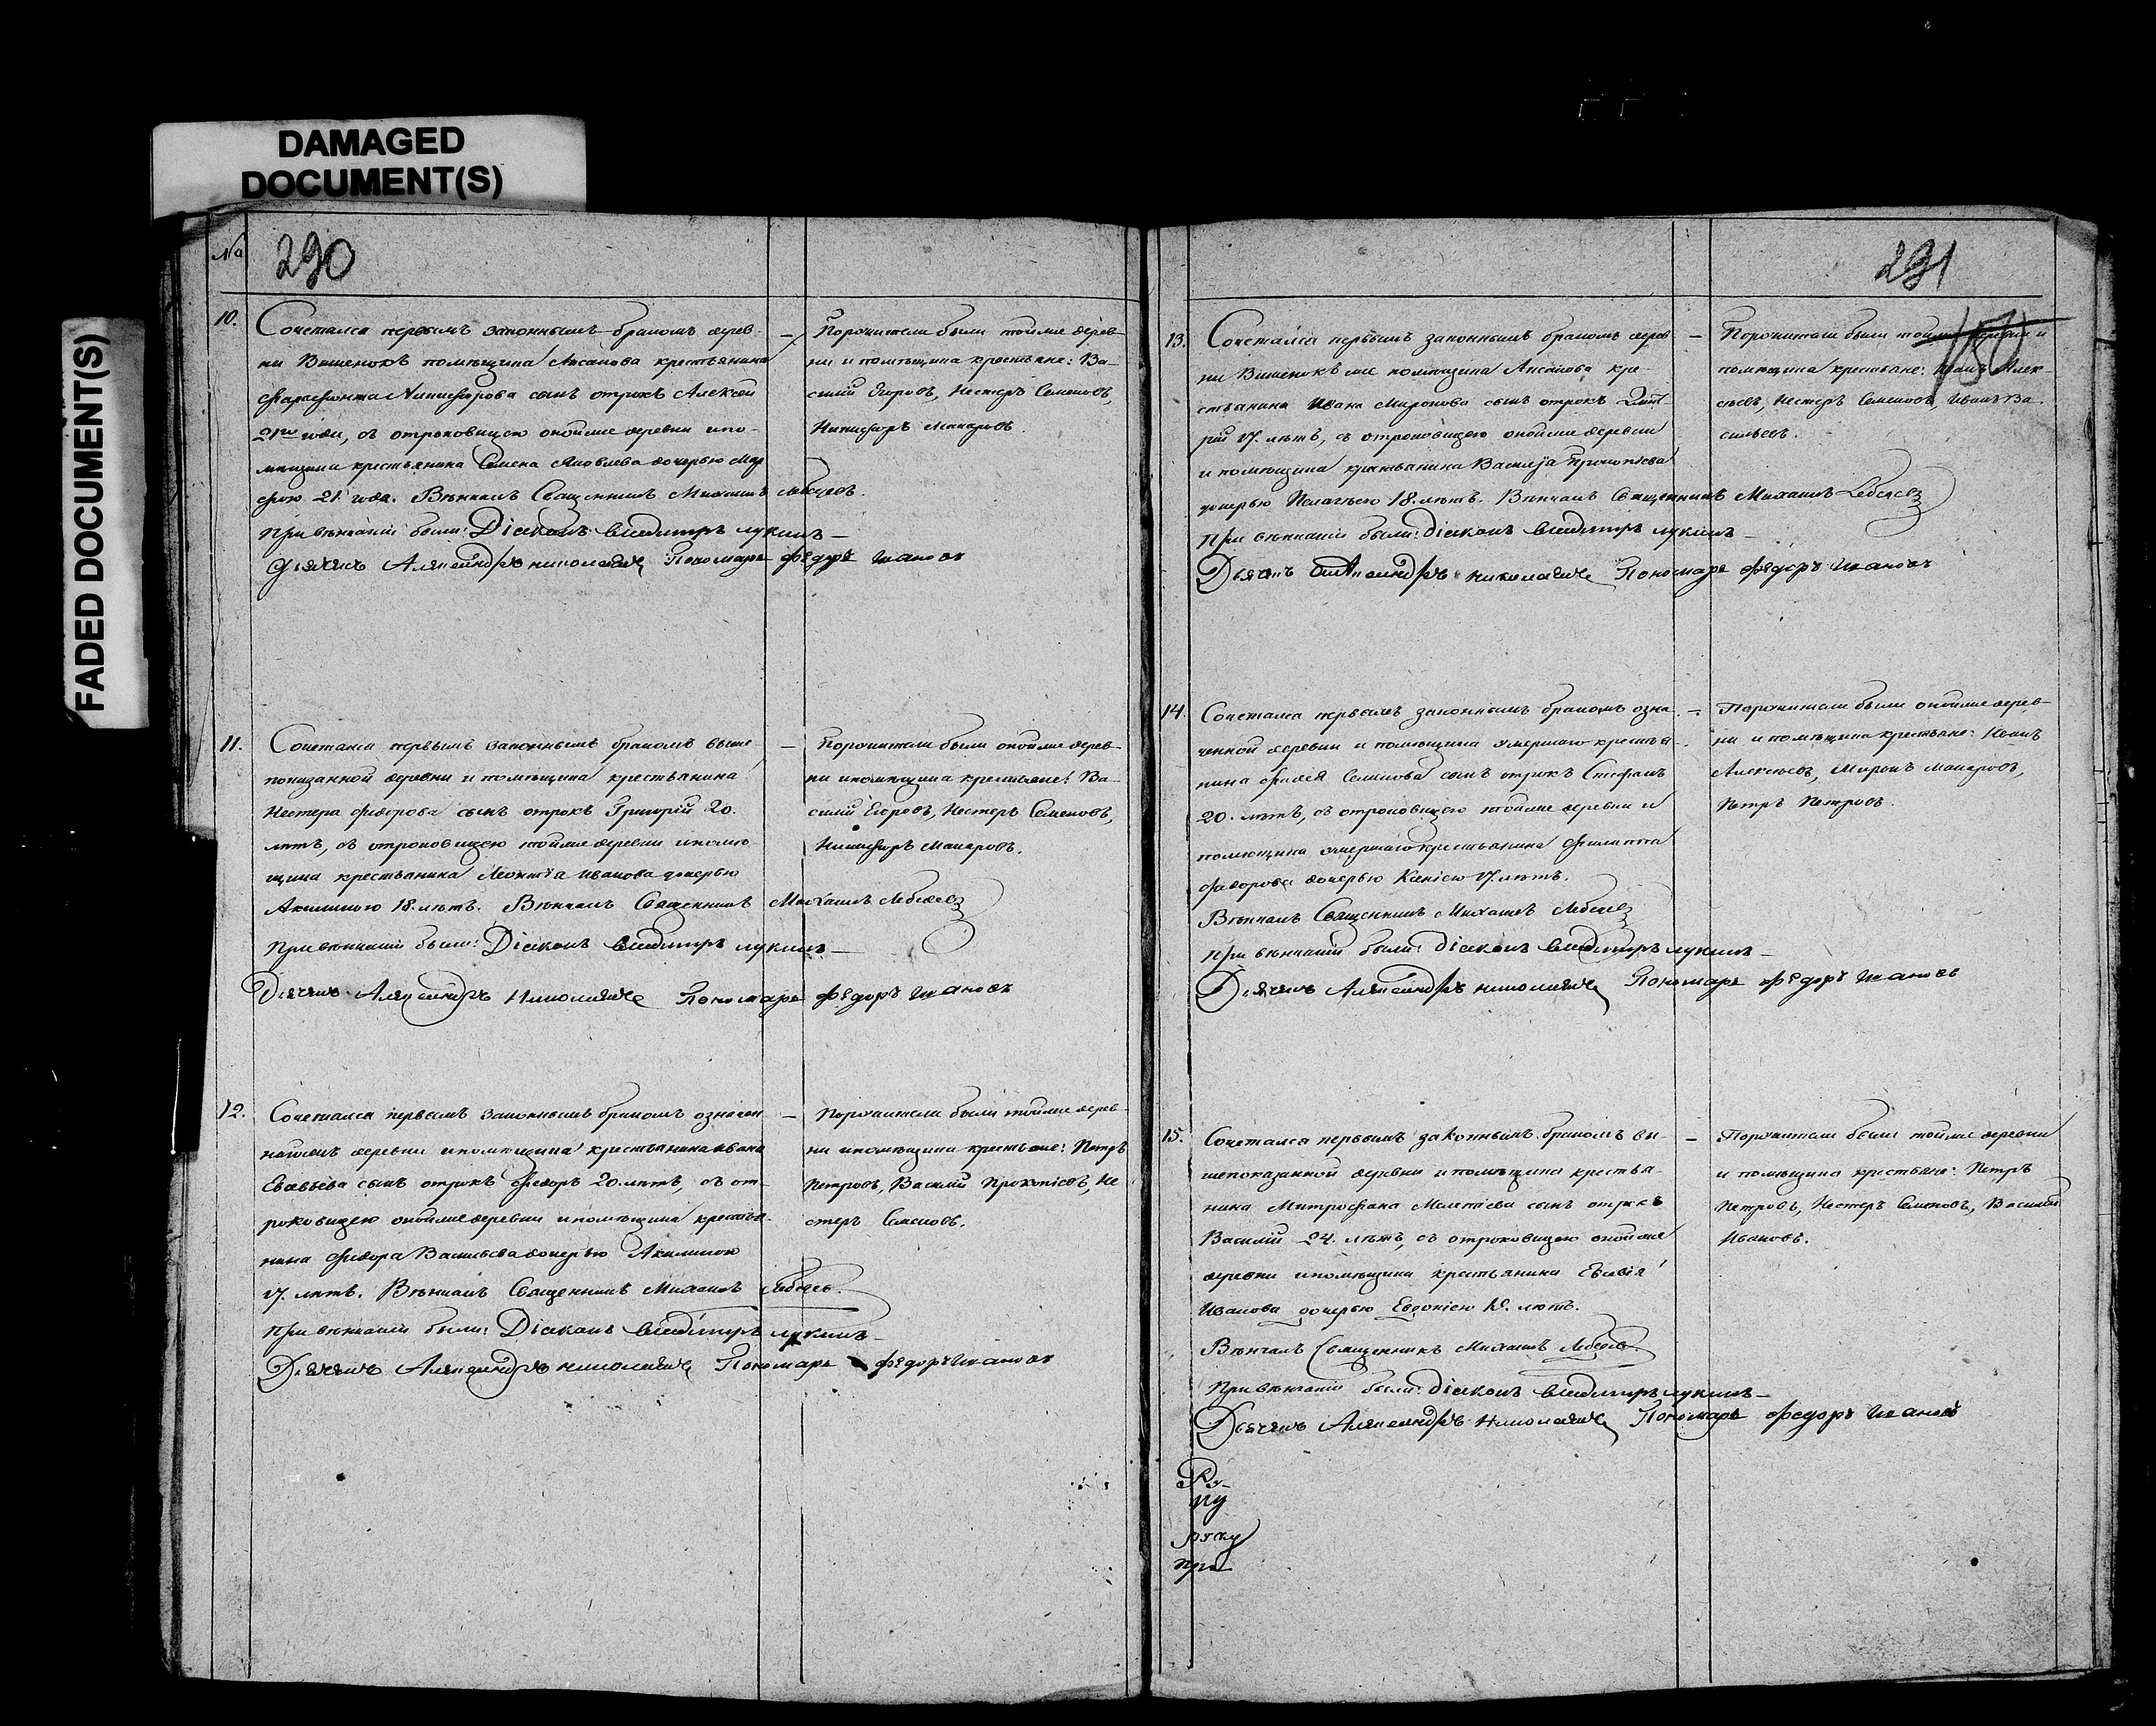 DAMAGED
DOCUMENT(S)
FADED DOCUMENT(S)
№
290
10.
Сочетался первымъ законнымъ бракомъ дерев-
ни Вишенокъ помѣщика Аксакова крестьянина
сынъ отрокъ Алексѣй
21го года, съ отроковицею оной же деревни и по-
мѣщика крестьянина Семена Яковлева дочерью Мар
фою 21 года. Вѣнчалъ Священникъ Михаилъ Лебедевъ.
При вѣнчаніи были: Діаконъ Владимиръ Лукинъ
Дьячекъ Александръ Николаевъ Пономарь Федоръ Ивановъ
— Поручители были той же дерев-
ни и помѣщика крестьяне: Ва-
силій Егоровъ, Нестеръ Семеновъ,
Никифоръ Макаровъ.
11.
Сочетался первымъ законнымъ бракомъ выше
показанной деревни и помѣщика крестьянина
Нестера Федорова сынъ отрокъ Григорій 20.
лѣтъ, съ отроковицею той же деревни и помѣ-
щика крестьянина Леонтія Иванова дочерью
Акилиною 18. лѣтъ. Вѣнчалъ Священникъ Михаилъ Лебедевъ
При вѣнчаніи были: Діаконъ Владимиръ Лукинъ —
Дьячекъ Александръ Николаевъ Пономарь Федоръ Ивановъ
— Поручители были оной же дерев-
ни и помѣщика крестьяне: Ва-
силій Егоровъ, Нестеръ Семеновъ,
Никифоръ Макаровъ.
12.
Сочетался первымъ законнымъ бракомъ означен
деревни и помѣщика крестьянина Ивана
сынъ отрокъ Федоръ 20. лѣтъ, съ от-
роковицею оной же деревни и помѣщика крестья-
нина Федора Васильева дочерью Акилиною
17. лѣтъ. Вѣнчалъ Священникъ Михаилъ Лебедевъ.
При вѣнчаніи были: Діаконъ Владимиръ Лукинъ —
Дьячекъ Александръ Николаевъ Пономарь Федоръ Ивановъ
— Поручители были той же дерев-
ни и помѣщика крестьяне: Петръ
Петровъ, Василій Прокопіевъ, Не
стеръ Семеновъ.
291
150
13.
Сочетался первымъ законнымъ бракомъ дерев
ни Вишенокъ же помѣщика Аксакова кре-
стьянина Ивана Миронова сынъ отрокъ Дмит
рій 17. лѣтъ, съ отроковицею оной же деревни
и помѣщика крестьянина Василья Прокопіева
дочерью Пелагѣею 18. лѣтъ. Вѣнчалъ Священникъ Михаилъ Лебедевъ
При вѣнчаніи были: Діаконъ Владимиръ Лукинъ —
Дьячекъ Александръ Николаевъ Пономарь Федоръ Ивановъ
— Поручители были той же деревни и
помѣщика крестьяне: Иванъ Алек-
сѣевъ, Нестеръ Семеновъ, Иванъ Ва-
сильевъ.
14.
Сочетался первымъ законнымъ бракомъ озна
ченной деревни и помѣщика умершаго крестья-
нина Семенова сынъ отрокъ Стефанъ
20. лѣтъ, съ отроковицею той же деревни и
помѣщика умершаго крестьянина Филиппа
Федорова дочерью Ксеніею 17. лѣтъ.
Вѣнчалъ Священникъ Михаилъ Лебедевъ
При вѣнчаніи были: Діаконъ Владимиръ Лукинъ —
Дьячекъ Александръ Николаевъ Пономарь Федоръ Ивановъ
— Поручители были оной же дерев-
ни и помѣщика крестьяне: Иванъ
Алексѣевъ, Миронъ Макаровъ,
Петръ Петровъ.
15.
Сочетался первымъ законнымъ бракомъ вы-
шепоказанной деревни и помѣщика крестья-
нина Митрофана Мелетіева сынъ отрокъ
Василій 24. лѣтъ, съ отроковицею оной же
деревни и помѣщика крестьянина
Иванова дочерью Евдокіею лѣтъ.
Вѣнчалъ Священникъ Михаилъ Лебедевъ
При вѣнчаніи были: Діаконъ Владимиръ Лукинъ —
Дьячекъ Александръ Николаевъ Пономарь Федоръ Ивановъ
— Поручители были той же деревни
и помѣщика крестьяне: Петръ
Петровъ, Нестеръ Семеновъ, Василій
Ивановъ.
Ру-
ку
при